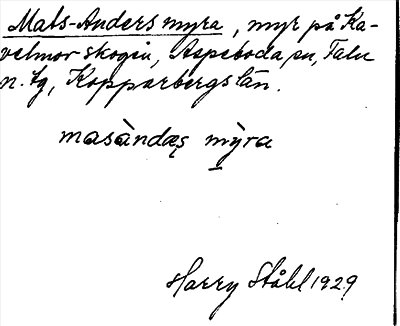 Mats-Anders myra, myr på Ka-
velmorskogen, Aspeboda sn, Falu
n. tg, Kopparbergs län.
masàndæș mỳra
Harry Ståhl 1929